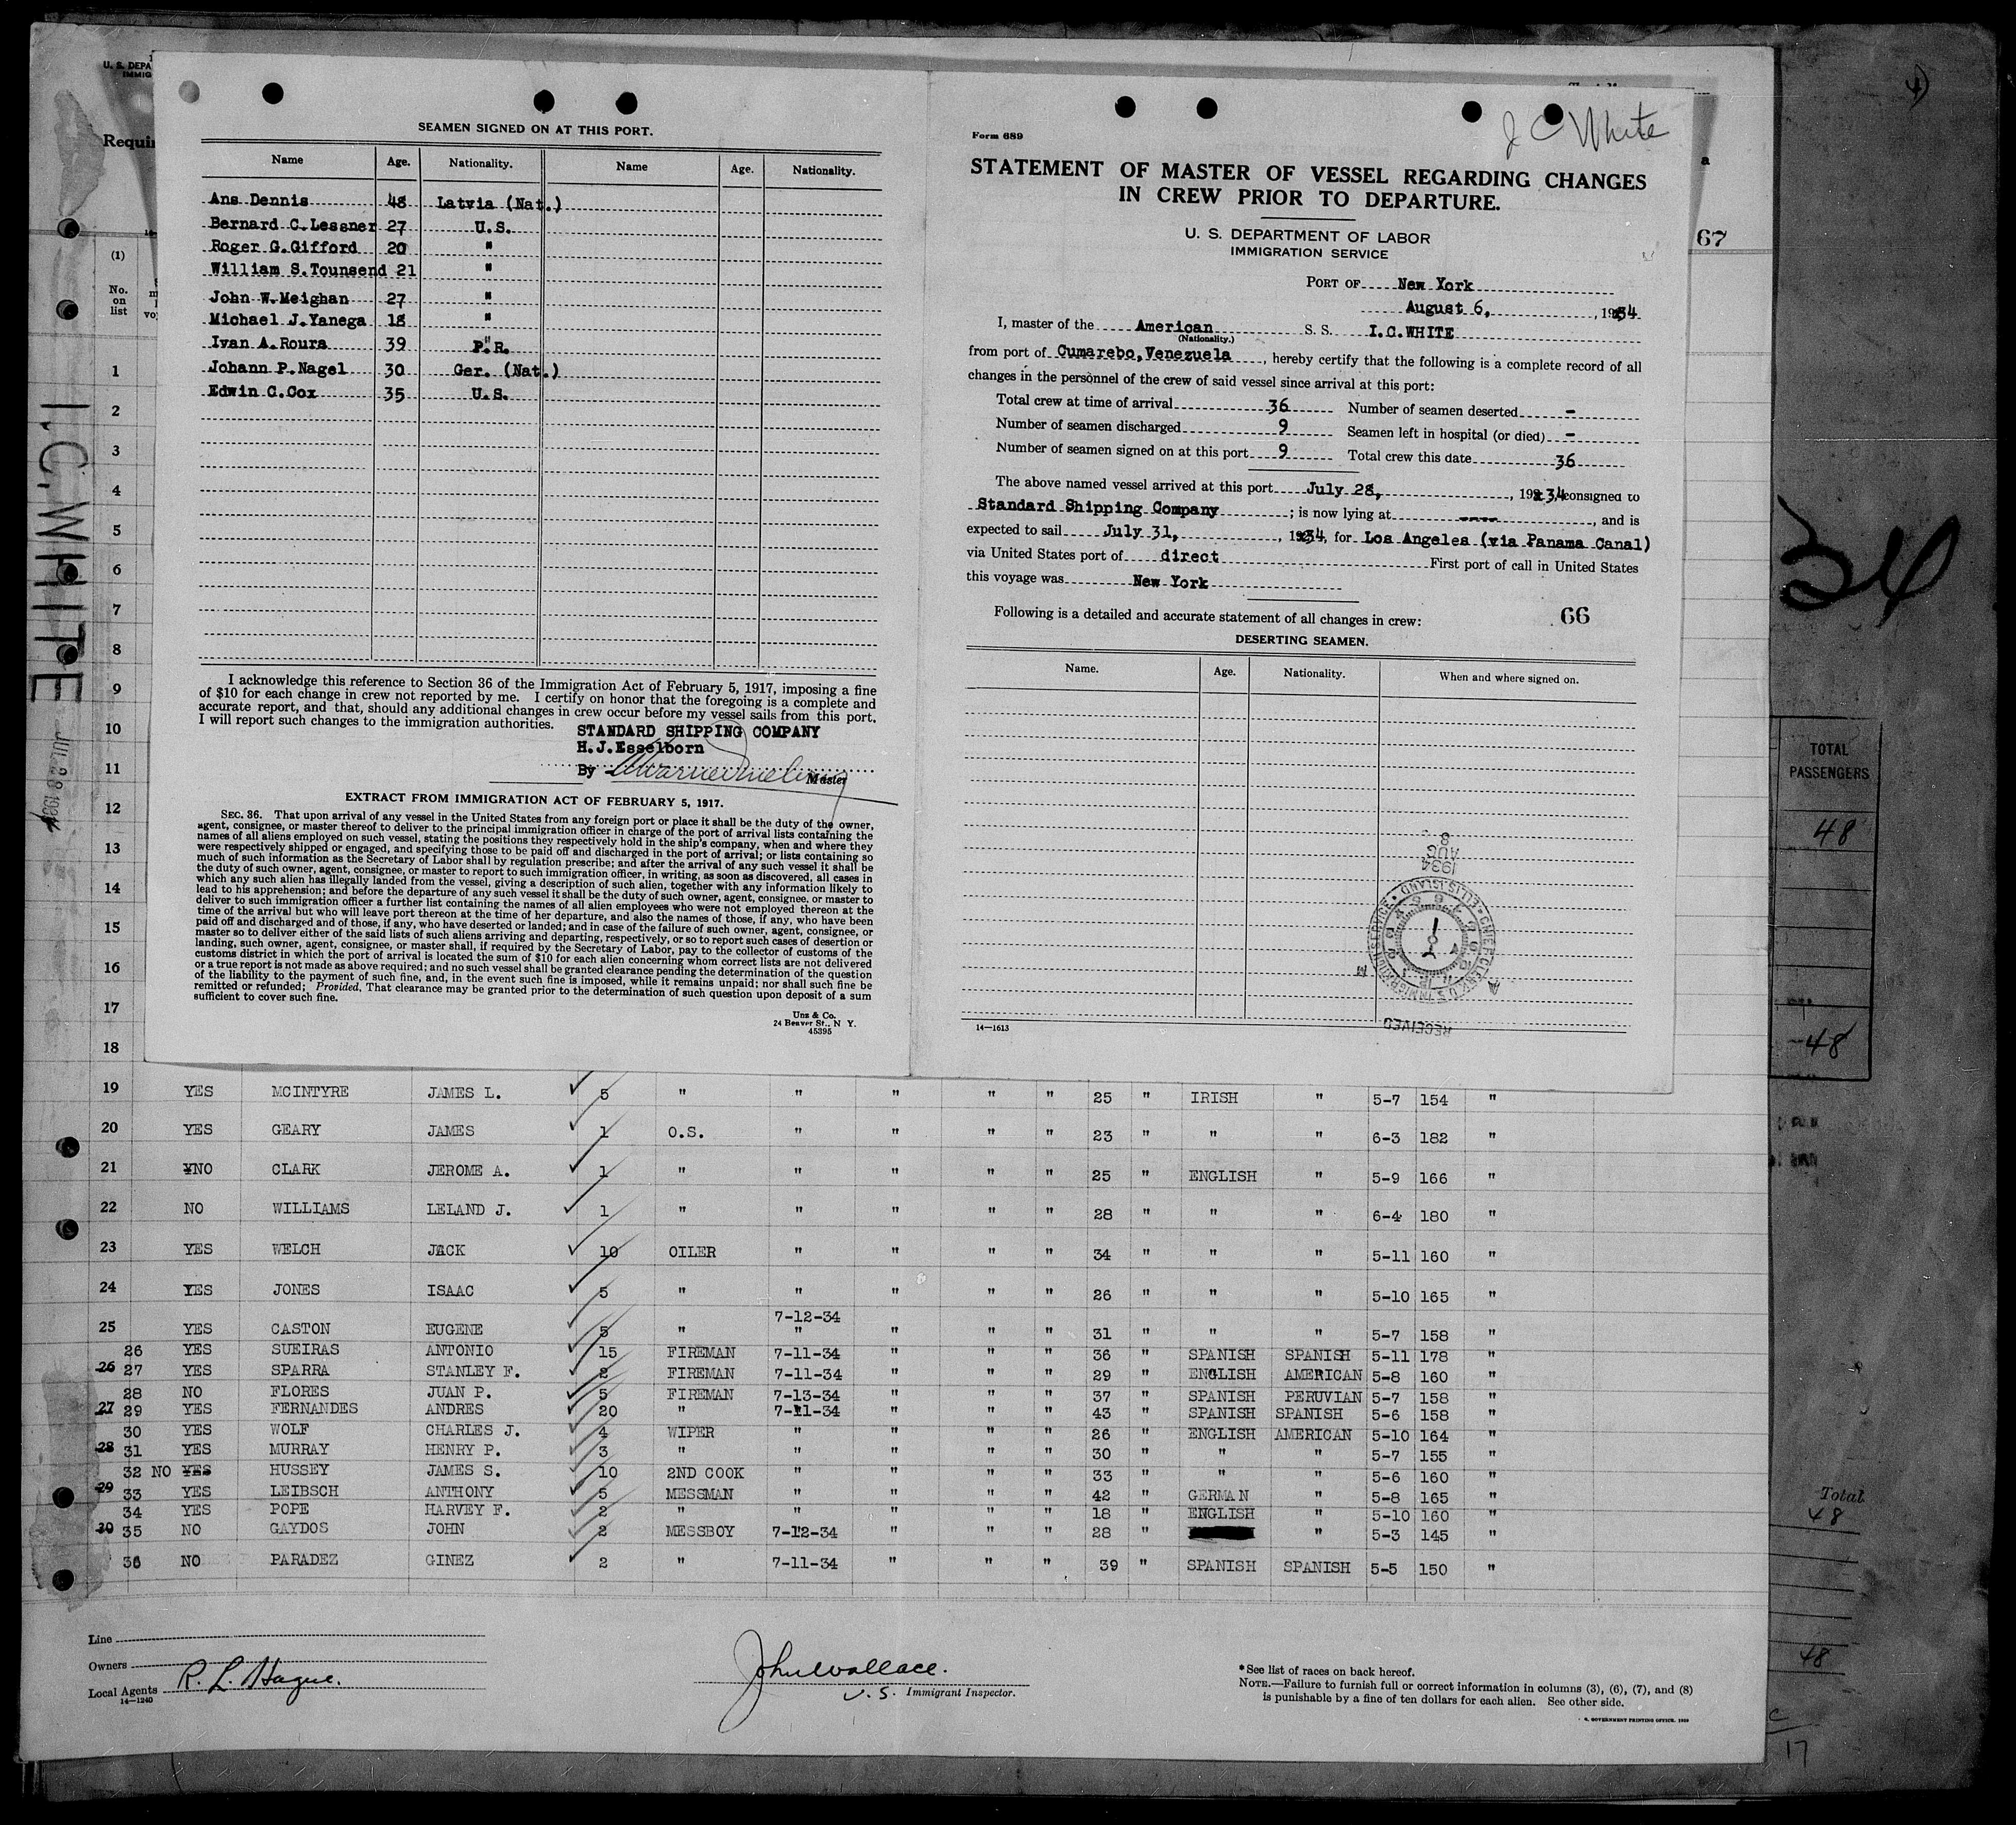 U. S. DEPA
IMMIG
Requir
(1)
No.
on
list
SEAMEN SIGNED ON AT THIS PORT.
Name Age. Nationality. Name Age. Nationality.
Ans Dennis 48 Latvia (Nat.)
Bernard C.Lessner 27 U.S.
Roger G.Gifford 20 "
William S.Tounsend 21 "
John W.Meighan 27 "
Michael J.Yanega 18 "
Ivan A.Roura 39 P.R.
Johann P.Nagel 30 Ger. (Nat.)
Edwin G.Cox 35 U.S.
I acknowledge this reference to Section 36 of the Immigration Act of February 5, 1917, imposing a fine
of $10 for each change in crew not reported by me. I certify on honor that the foregoing is a complete and
accurate report, and that, should any additional changes in crew occur before my vessel sails from this port,
I will report such changes to the immigration authorities.
STANDARD SHIPPING COMPANY
H.J.Esselborn
By Master
EXTRACT FROM IMMIGRATION ACT OF FEBRUARY 5, 1917.
SEC. 36. That upon arrival of any vessel in the United States from any foreign port or place it shall be the duty of the owner,
agent, consignee, or master thereof to deliver to the principal immigration officer in charge of the port of arrival lists containing the
names of all aliens employed on such vessel, stating the positions they respectively hold in the ship's company, when and where they
were respectively shipped or engaged, and specifying those to be paid off and discharged in the port of arrival; or lists containing so
much of such information as the Secretary of Labor shall by regulation prescribe; and after the arrival of any such vessel it shall be
the duty of such owner, agent, consignee, or master to report to such immigration officer, in writing, as soon as discovered, all cases in
which any such alien has illegally landed from the vessel, giving a description of such alien, together with any information likely to
lead to his apprehension; and before the departure of any such vessel it shall be the duty of such owner, agent, consignee, or master to
deliver to such immigration officer a further list containing the names of all alien employees who were not employed thereon at the
time of the arrival but who will leave port thereon at the time of her departure, and also the names of those, if any, who have been
paid off and discharged and of those, if any, who have deserted or landed; and in case of the failure of such owner, agent, consignee, or
master so to deliver either of the said lists of such aliens arriving and departing, respectively, or so to report such cases of desertion or
landing, such owner, agent, consignee, or master shall, if required by the Secretary of Labor, pay to the collector of customs of the
customs district in which the port of arrival is located the sum of $10 for each alien concerning whom correct lists are not delivered
or a true report is not made as above required; and no such vessel shall be granted clearance pending the determination of the question
of the liability to the payment of such fine, and, in the event such fine is imposed, while it remains unpaid; nor shall such fine be
remitted or refunded; Provided, That clearance may be granted prior to the determination of such question upon deposit of a sum
sufficient to cover such fine.
Unz & Co.
24 Beaver St., N Y.
45395
J C White
Form 689
STATEMENT OF MASTER OF VESSEL REGARDING CHANGES
IN CREW PRIOR TO DEPARTURE.
U. S. DEPARTMENT OF LABOR
IMMIGRATION SERVICE
PORT OF New York
August 6, , 1934
I, master of the American S. S. I.C.WHITE
(Nationality.)
from port of Cumarebo,Venezuela , hereby certify that the following is a complete record of all
changes in the personnel of the crew of said vessel since arrival at this port:
Total crew at time of arrival 36 Number of seamen deserted -
Number of seamen discharged 9 Seamen left in hospital (or died) -
Number of seamen signed on at this port 9 Total crew this date 36
The above named vessel arrived at this port July 28, , 1934, consigned to
Standard Shipping Company ; is now lying at ---- , and is
expected to sail July 31, , 1934, for Los Angeles (via Panama Canal)
via United States port of direct First port of call in United States
this voyage was New York
Following is a detailed and accurate statement of all changes in crew: 66
DESERTING SEAMEN.
Name. Age. Nationality. When and where signed on.
8
AUG
1934
CHIEF CLERK U.S. IMMIGRATION SERVICE ELLIS ISLAND
RECEIVED
14—1613
67
34
I.C.WHITE
JUL 28 1934
TOTAL
PASSENGERS
48
48
1
2
3
4
5
6
7
8
9
10
11
12
13
14
15
16
17
18
19 YES MCINTYRE JAMES L. 5 " " " " " 25 " IRISH " 5-7 154 "
20 YES GEARY JAMES 1 O.S. " " " " 23 " " " 6-3 182 "
21 NO CLARK JEROME A. 1 " " " " " 25 " ENGLISH " 5-9 166 "
22 NO WILLIAMS LELAND J. 1 " " " " " 28 " " " 6-4 180 "
23 YES WELCH JACK 10 OILER " " " " 34 " " " 5-11 160 "
24 YES JONES ISAAC 5 " " " " " 26 " " " 5-10 165 "
7-12-34
25 YES CASTON EUGENE 5 " " " " " 31 " " " 5-7 158 "
26 YES SUEIRAS ANTONIO 15 FIREMAN 7-11-34 " " " 36 " SPANISH SPANISH 5-11 178 "
26 27 YES SPARRA STANLEY F. 2 FIREMAN 7-11-34 " " " 29 " ENGLISH AMERICAN 5-8 160 "
28 NO FLORES JUAN P. 5 FIREMAN 7-13-34 " " " 37 " SPANISH PERUVIAN 5-7 158 "
27 29 YES FERNANDES ANDRES 20 " 7-11-34 " " " 43 " SPANISH SPANISH 5-6 158 "
30 YES WOLF CHARLES J. 4 WIPER " " " " 26 " ENGLISH AMERICAN 5-10 164 "
28 31 YES MURRAY HENRY P. 3 " " " " " 30 " " " 5-7 155 "
32 NO YES HUSSEY JAMES S. 10 2ND COOK " " " " 33 " " " 5-6 160 "
29 33 YES LEIBSCH ANTHONY 5 MESSMAN " " " " 42 " GERMAN " 5-8 165 "
34 YES POPE HARVEY F. 2 " " " " " 18 " ENGLISH " 5-10 160 "
30 35 NO GAYDOS JOHN 2 MESSBOY 7-12-34 " " " 28 " " 5-3 145 "
36 NO PARADEZ GINEZ 2 " 7-11-34 " " " 39 " SPANISH SPANISH 5-5 150 "
Total
48
48
17
Line
Owners
Local Agents R. L. Hague.
14—1240
John Wallace.
U. S. Immigrant Inspector.
*See list of races on back hereof.
NOTE.—Failure to furnish full or correct information in columns (3), (6), (7), and (8)
is punishable by a fine of ten dollars for each alien. See other side.
GOVERNMENT PRINTING OFFICE